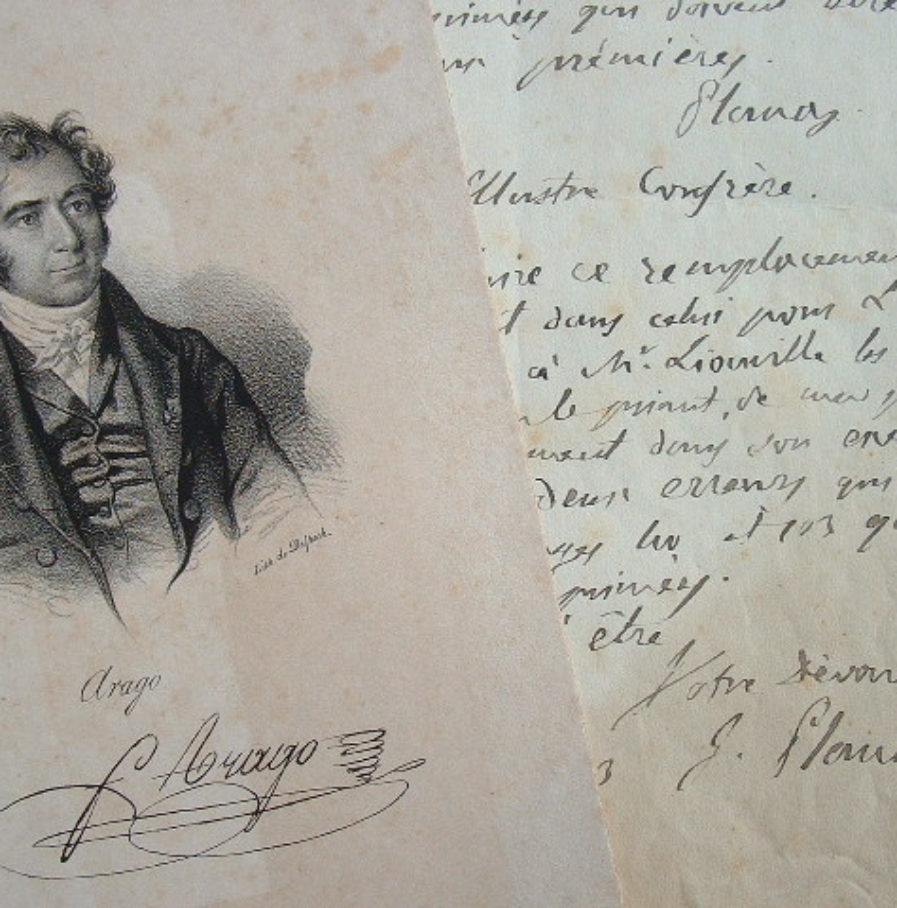 Lith. de Delpech.
Arago
F. Arago
primées qui doivent être
prémières.
Plana
Illustre Confrère.
ire ce remplacemen
t dans celui pour L
à Mr. Liouville les
le priant, de
ment dans son
Deux erreurs qui
et 103 q
primées.
être
Votre Dévou
3 J. Plana